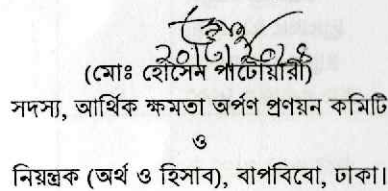 (মোঃ হোসেন পাটোয়ারী)
সদস্য, আর্থিক ক্ষমতা অর্পণ প্রণয়ন কমিটি
ও
নিয়ন্ত্রক (অর্থ ও হিসাব), বাপবিবো, ঢাকা।